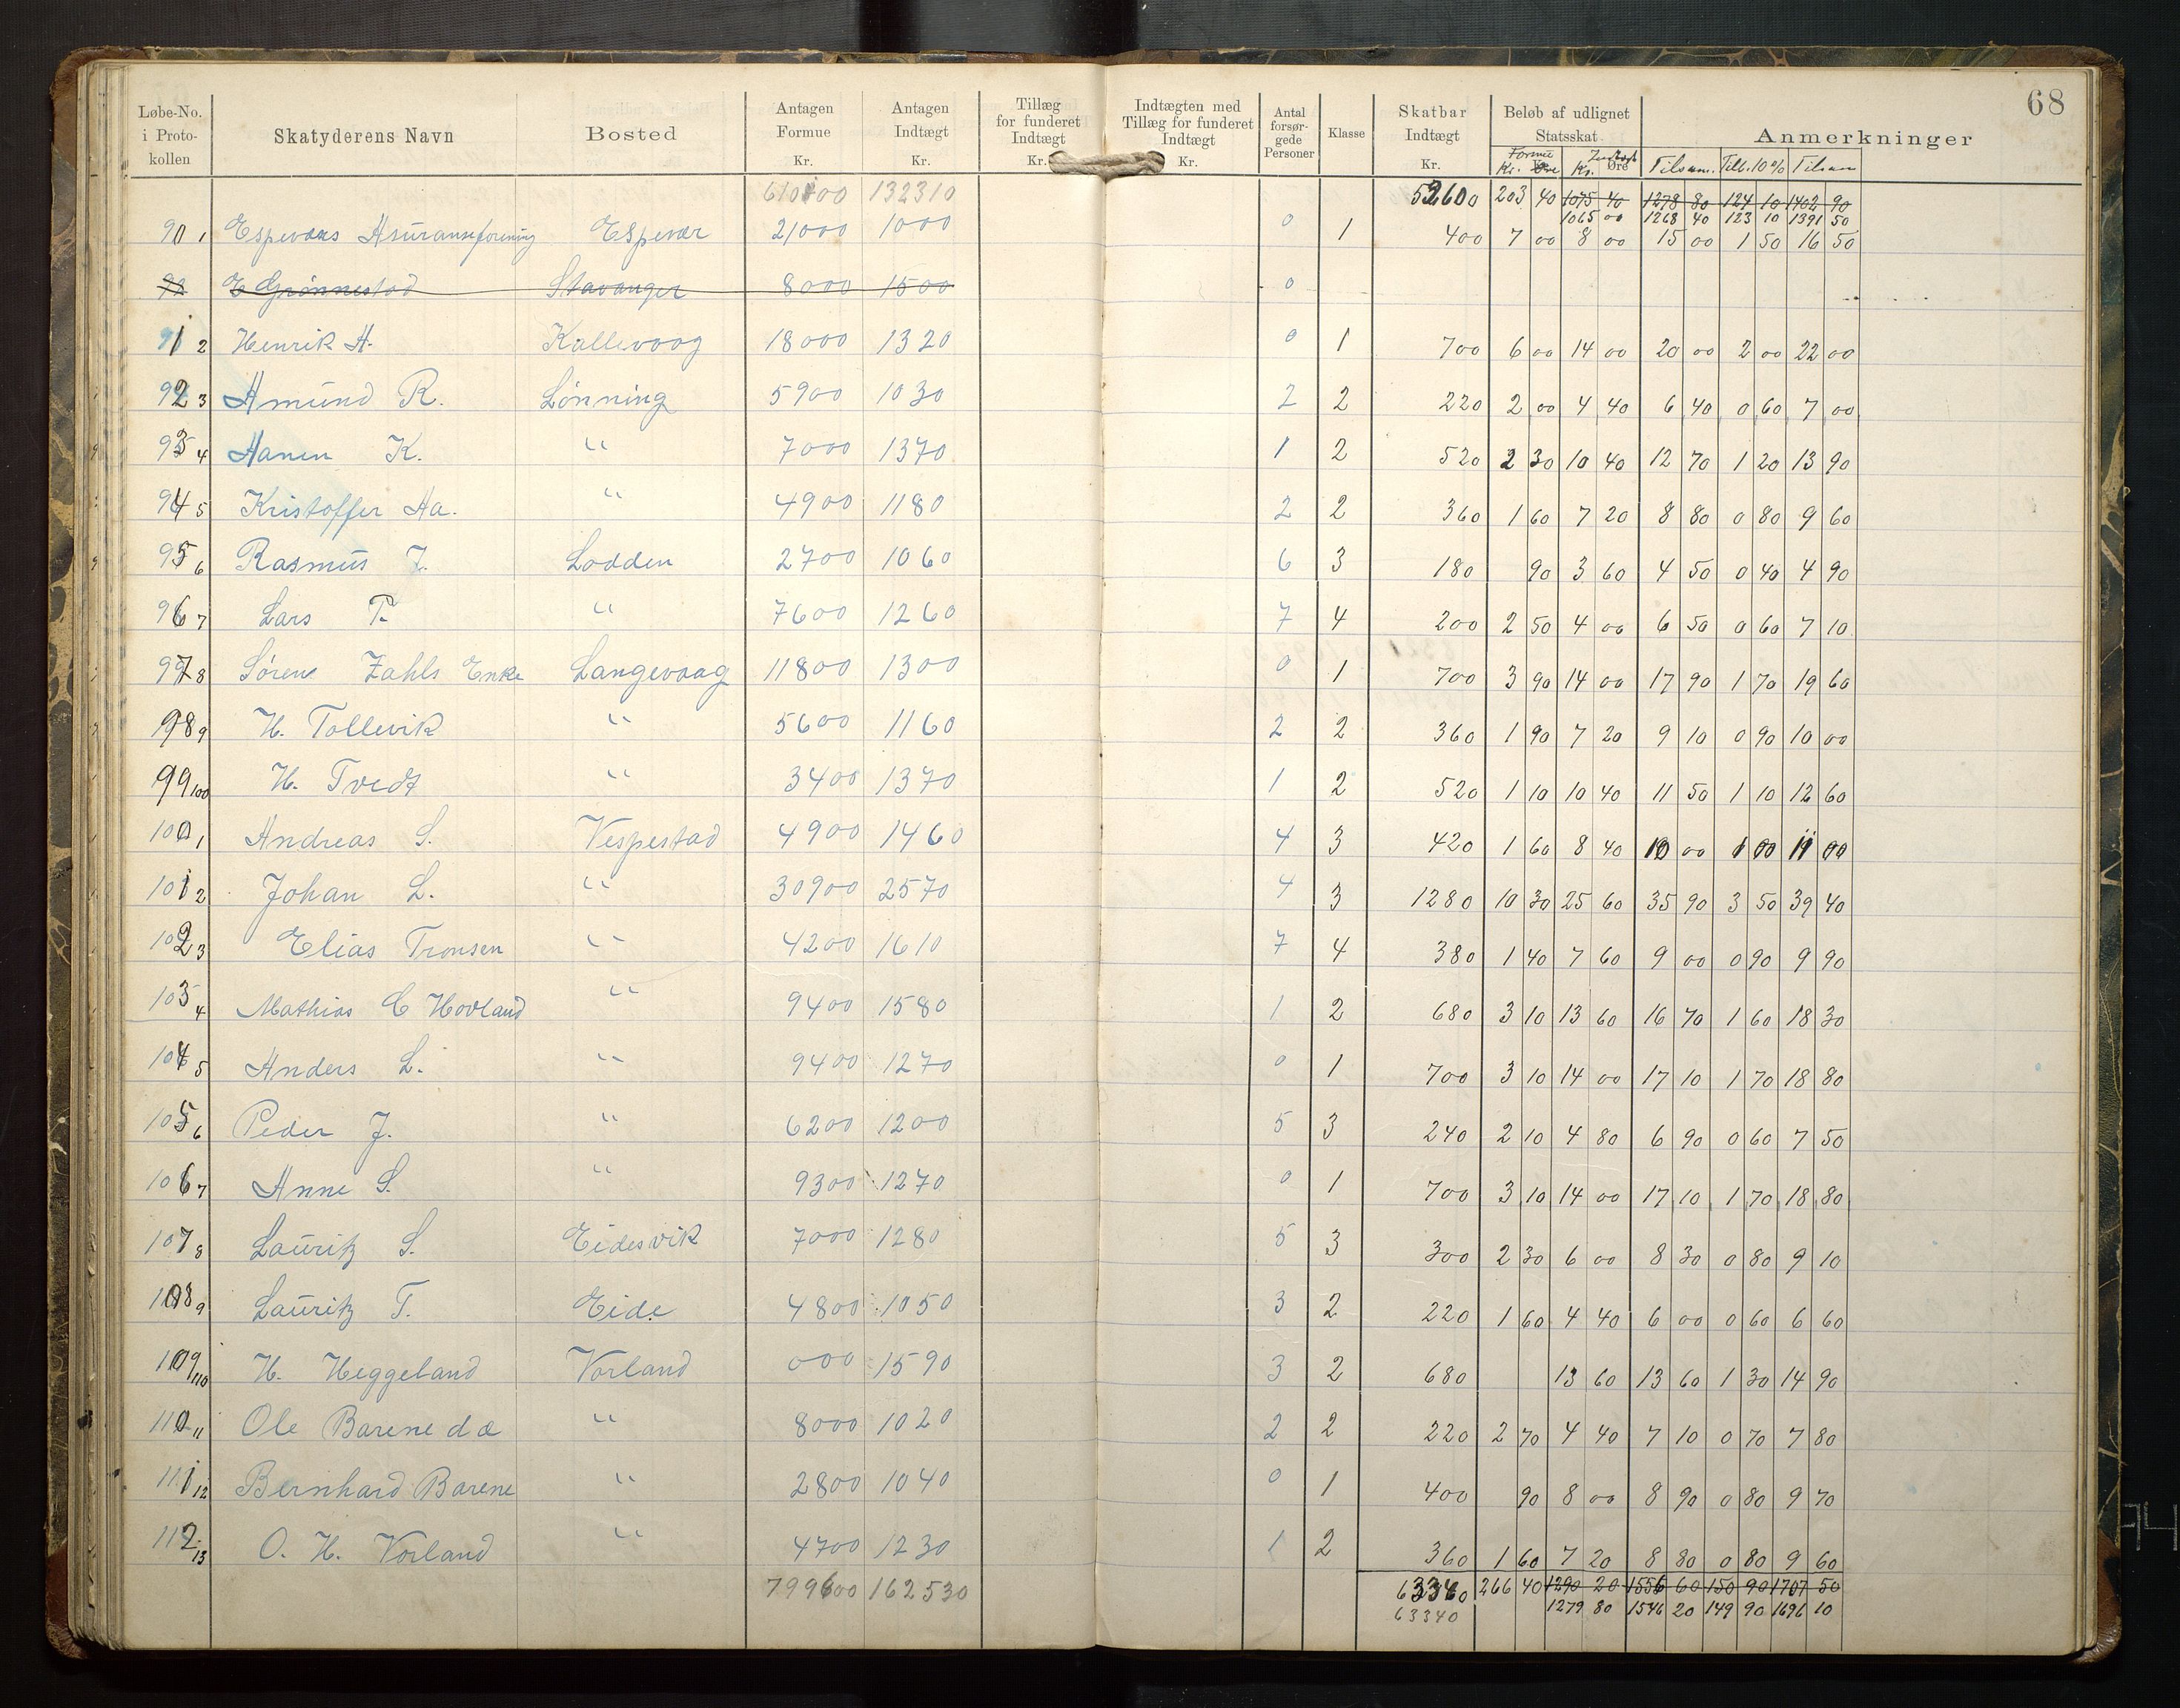 68
Løbe-No. i Protokollen | Skatyderens Navn | Bosted | Antagen Formue Kr. | Antagen Indtægt Kr. | Tillæg for funderet Indtægt Kr. | Indtægten med Tillæg for funderet Indtægt Kr. | Antal forsørgede Personer | Klasse | Skatbar Indtægt Kr. | Beløb af udlignet Statsskat Formue Kr. Øre Kr. Øre | Anmerkninger Tilsam. Till. 10% Tilsam
610400 132310 53600 203 40 1075 40 1278 80 124 10 1402 90
1065 00 1268 40 123 10 1391 50
90 1 Espeværs Asuranseforening Espevær 21000 1000 0 1 400 7 00 8 00 15 00 1 50 16 50
92 E Grønnestad Stavanger 8000 1500 0
91 2 Henrik A. Kallevaag 18000 1320 0 1 700 6 00 14 00 20 00 2 00 22 00
92 3 Amund R. Lønning 5900 1030 2 2 220 2 00 4 40 6 40 0 60 7 00
93 4 Aanen K. " 7000 1370 1 2 520 2 30 10 40 12 70 1 20 13 90
94 5 Kristoffer Aa. " 4900 1180 2 2 360 1 60 7 20 8 80 0 80 9 60
95 6 Rasmus J. Lodden 2700 1060 6 3 180 90 3 60 4 50 0 40 4 90
96 7 Lars T. " 7600 1260 7 4 200 2 50 4 00 6 50 0 60 7 10
97 8 Sørene Zahls Enke Langevaag 11800 1300 0 1 700 3 90 14 00 17 90 1 70 19 60
98 9 H. Tollevik " 5600 1160 2 2 360 1 90 7 20 9 10 0 90 10 00
99 100 H. Tvedt " 3400 1370 1 2 520 1 10 10 40 11 50 1 10 12 60
100 1 Andreas S. Vespestad 4900 1460 4 3 420 1 60 8 40 10 00 1 00 11 00
101 2 Johan L. " 30900 2570 4 3 1280 10 30 25 60 35 90 3 50 39 40
102 3 Elias Tronsen " 4200 1610 7 4 380 1 40 7 60 9 00 0 90 9 90
103 4 Mathias C Hovland " 9400 1580 1 2 680 3 10 13 60 16 70 1 60 18 30
104 5 Anders L. " 9400 1270 0 1 700 3 10 14 00 17 10 1 70 18 80
105 6 Peder J. " 6200 1200 5 3 240 2 10 4 80 6 90 0 60 7 50
106 7 Anne S. " 9300 1270 0 1 700 3 10 14 00 17 10 1 70 18 80
107 8 Lauritz S. Eidesvik 7000 1280 5 3 300 2 30 6 00 8 30 0 80 9 10
108 9 Lauritz T. Eide 4800 1050 3 2 220 1 60 4 40 6 00 0 60 6 60
109 110 H. Heggeland Vorland 000 1590 3 2 680 13 60 13 60 1 30 14 90
110 11 Ole Barene d æ " 8000 1020 2 2 220 2 70 4 40 7 10 0 70 7 80
111 12 Bernhard Barene " 2800 1040 0 1 400 90 8 00 8 90 0 80 9 70
112 13 O. H. Vorland " 4700 1230 1 2 360 1 60 7 20 8 80 0 80 9 60
799600 162530 63340 266 40 1290 20 1556 60 150 90 1707 50
63340 1279 80 1546 20 149 90 1696 10